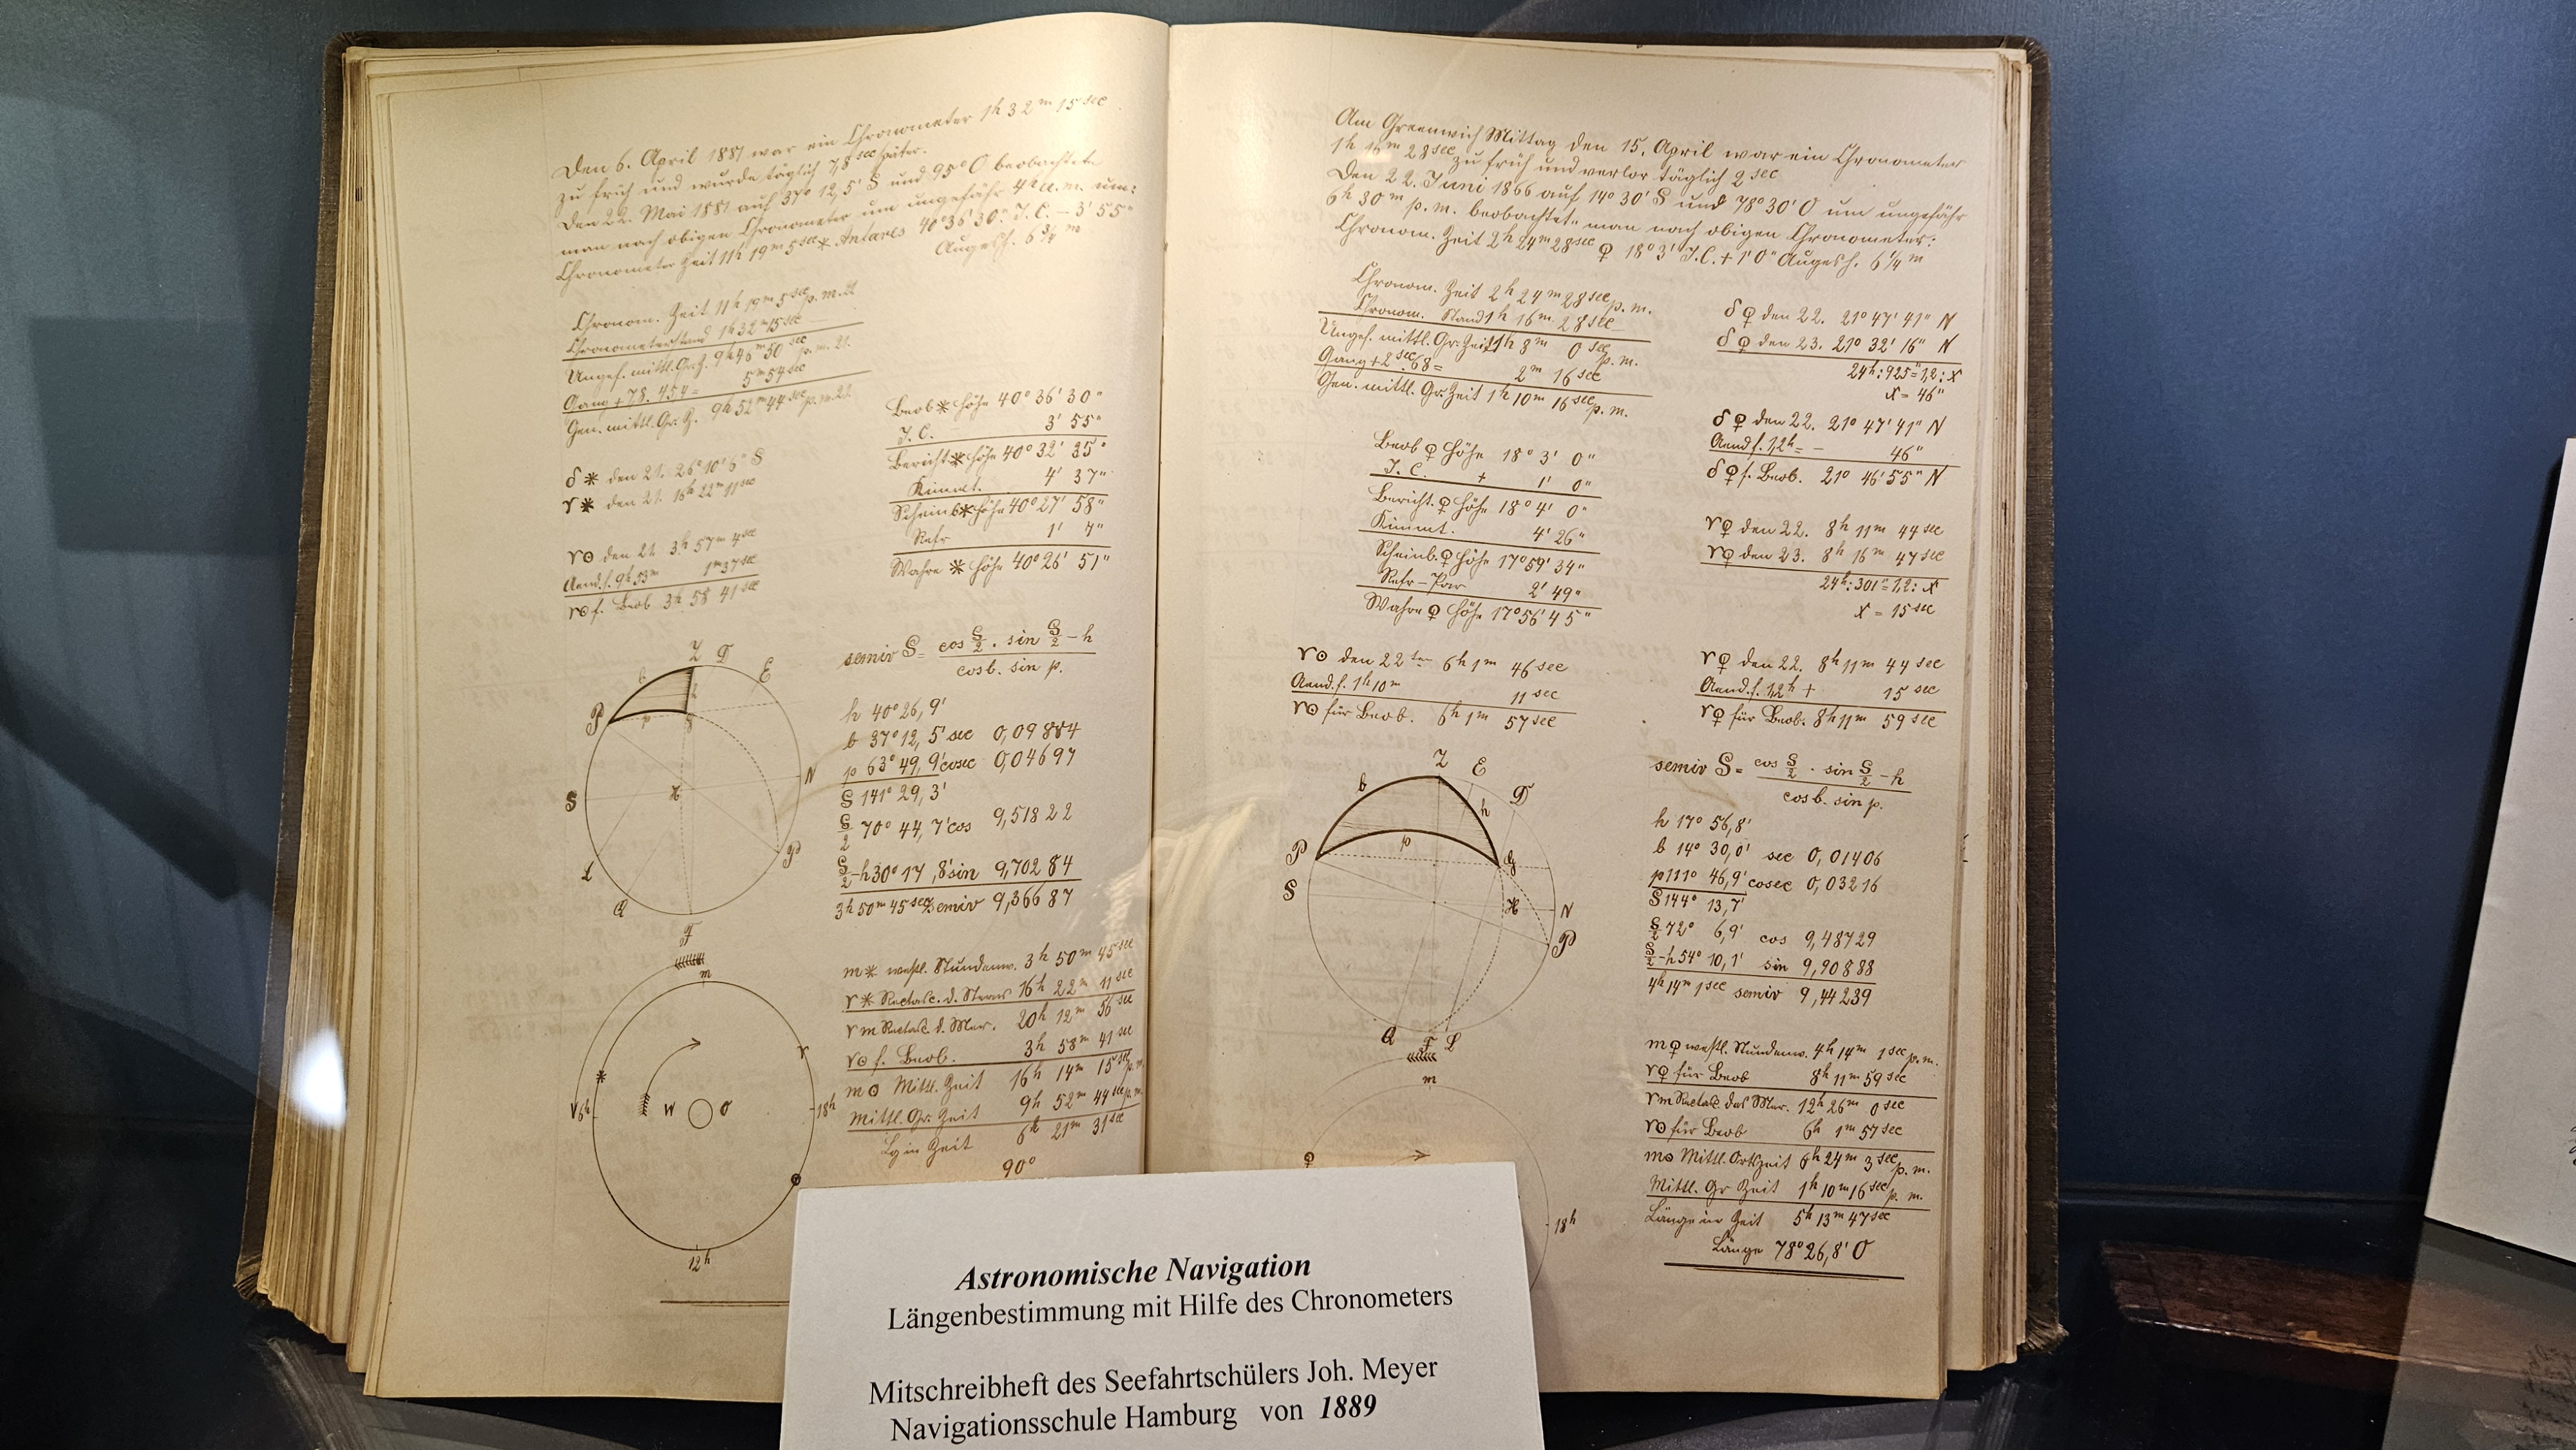 Den 6. April 1881 war ein Chronometer 1h 32m 15sec
zu früh und wurde täglich 7,8sec später.
Den 22. Mai 1881 auf 37° 12,5' S und 95° O beobachtete
man nach obigen Chronometer um ungefähr 4h a.m. um:
Chronometer Zeit 11h 19m 5sec * Antares 40°36'30" J. C. – 3' 55"
Augesh. 6 3/4 m
Chronom. Zeit 11h 19m 5sec p.m. 21
Chronometerstand 1h 32m 15sec
Ungef. mittl. Gr. Z. 9h 46m 50sec p.m. 21.
Gang + 7,8 . 45,4 = 5m 54sec
Gen. mittl. Gr. Z. 9h 52m 44sec p.m. 21
δ * den 21. 26° 10' 6" S
γ * den 21. 16h 22m 11sec
γ☉ den 21 3h 57m 4sec
Aend. f. 9h 53m 1m 37sec
γ☉ f. Beob. 3h 58 41sec
Beob * Höhe 40° 36' 30"
J. C. 3' 55"
Bericht * Höhe 40° 32' 35"
Kimmt. 4' 37"
Scheinb * Höhe 40° 27' 58"
Refr 1' 7"
Wahre * Höhe 40° 26' 51"
semiv S = cos S/2 . sin S/2 – h
cos b. sin p.
h 40° 26,9'
b 37° 12,5' sec 0,09884
p 63° 49,9' cosec 0,04697
S 141° 29,3'
S/2 70° 44,7' cos 9,51822
S/2 – h 30° 17,8' sin 9,70284
3h 50m 45sec semiv 9,36687
Z D E
b
h
P p
N
S
P
L
Q
F
m
*
γ
W O
6h
18h
12h
m * westl. Stundenw. 3h 50m 45sec
γ * Rectasc. d. Sterns 16h 22m 11sec
γ m Rectasc. d. Mer. 20h 12m 56sec
γ☉ f. Beob. 3h 58m 41sec
m☉ Mittl. Zeit 16h 14m 15sec p.m.
Mittl. Gr. Zeit 9h 52m 44sec p.m.
Lg in Zeit 6h 21m 31sec
90°
Am Greenwich Mittag den 15. April war ein Chronometer
1h 16m 28sec zu früh und verlor täglich 2sec
Den 22. Juni 1866 auf 14° 30' S und 78° 30' O um ungefähr
6h 30m p.m. beobachtete man nach obigen Chronometer:
Chronom. Zeit 2h 24m 28sec ♀ 18° 3' J.C. + 1' 0" Augesh. 6 1/4 m
Chronom. Zeit 2h 24m 28sec p.m.
Chronom. Stand 1h 16m 28sec
Ungef. mittl. Gr. Zeit 1h 8m 0sec p.m.
Gang + 2sec . 68 = 2m 16sec
Gen. mittl. Gr. Zeit 1h 10m 16sec p.m.
Beob ♀ Höhe 18° 3' 0"
J. C. + 1' 0"
Bericht. ♀ Höhe 18° 4' 0"
Kimmt. 4' 26"
Scheinb. ♀ Höhe 17° 59' 34"
Refr – Par 2' 49"
Wahre ♀ Höhe 17° 56' 45"
γ☉ den 22ten 6h 1m 46sec
Aend. f. 1h 10m 11sec
γ☉ für Beob. 6h 1m 57sec
δ ♀ den 22. 21° 47' 41" N
δ ♀ den 23. 21° 32' 16" N
24h : 925" = 1,2 : x
x = 46"
δ ♀ den 22. 21° 47' 41" N
Aend f. 1,2h = – 46"
δ ♀ f. Beob. 21° 46' 55" N
γ♀ den 22. 8h 11m 44sec
γ♀ den 23. 8h 16m 47sec
24h : 301" = 1,2 : x
x = 15sec
γ♀ den 22. 8h 11m 44sec
Aend. f. 1,2h + 15sec
γ♀ für Beob. 8h 11m 59sec
Z E D
b h
P p
S
N
P
Q F L
m
♀
18h
semiv S = cos S/2 . sin S/2 – h
cos b. sin p.
h 17° 56,8'
b 14° 30,0' sec 0,01406
p 111° 46,9' cosec 0,03216
S 144° 13,7'
S/2 72° 6,9' cos 9,48729
S/2 – h 54° 10,1' sin 9,90888
4h 14m 1sec semiv 9,44239
m♀ westl. Stundenw. 4h 14m 1sec p.m.
γ♀ für Beob 8h 11m 59sec
γm Rectasc. des Mer. 12h 26m 0sec
γ☉ für Beob 6h 1m 57sec
m☉ Mittl. Ortszeit 6h 24m 3sec p.m.
Mittl. Gr Zeit 1h 10m 16sec p.m.
Länge in Zeit 5h 13m 47sec
Länge 78° 26,8' O
Astronomische Navigation
Längenbestimmung mit Hilfe des Chronometers
Mitschreibheft des Seefahrtschülers Joh. Meyer
Navigationsschule Hamburg von 1889